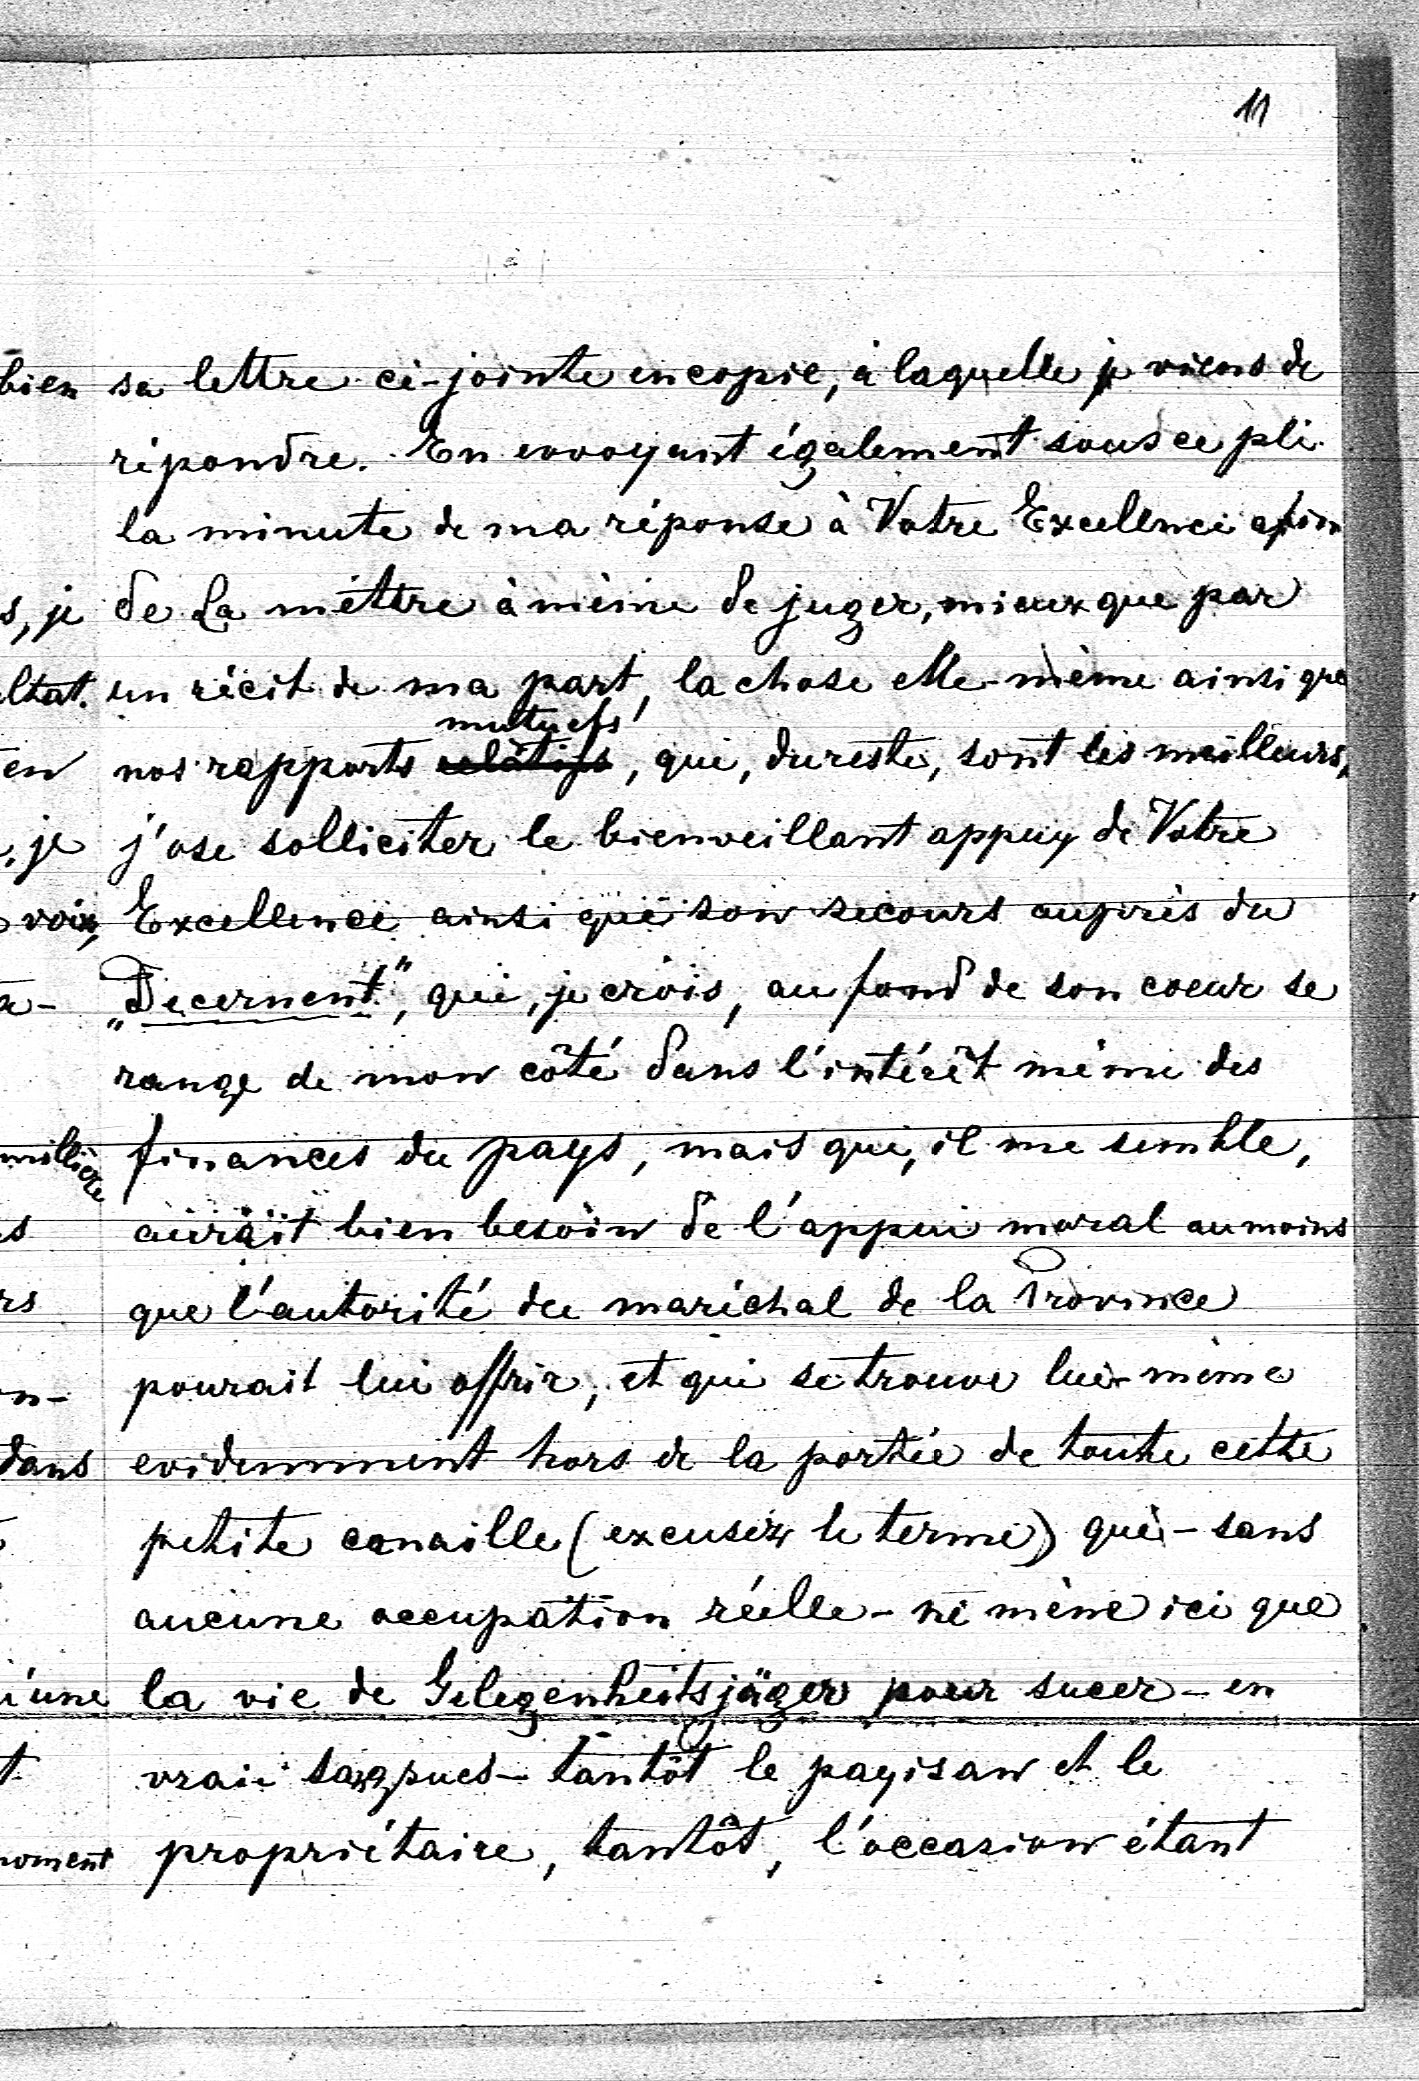 11
sa lettre ci-jointe en copie, à laquelle je viens de
répondre. En envoyant également sous ce pli
la minute de ma réponse à Votre Excellence afin
de La mettre à même de juger, mieux que par
un récit de ma part, la chose elle-même ainsi que
mutuels
nos rapports relatifs, qui, du reste, sont les meilleurs,
j'ose solliciter le bienveillant appuy de Votre
Excellence ainsi que son secours auprès du
„Decernent", qui, je crois, au fond de son coeur se
range de mon côté dans l'intérêt même des
finances du pays, mais qui, il me semble,
aurait bien besoin de l'appui moral au moins
que l'autorité du maréchal de la Province
pourait lui offrir, et qui se trouve lui-même
evidemment hors de la portée de toute cette
petite canaille (excusez le terme) qui - sans
aucune occupation réelle - ne mène ici que
la vie de Gelegenheitsjäger pour sucer - en
vraie - tantôt le paysan et le
propriétaire, tantôt, l'occasion étant
bien
s, je
ltat.
en
, je
voix,
a-
millière
s
rs
n-
dans
d'une
t
moment